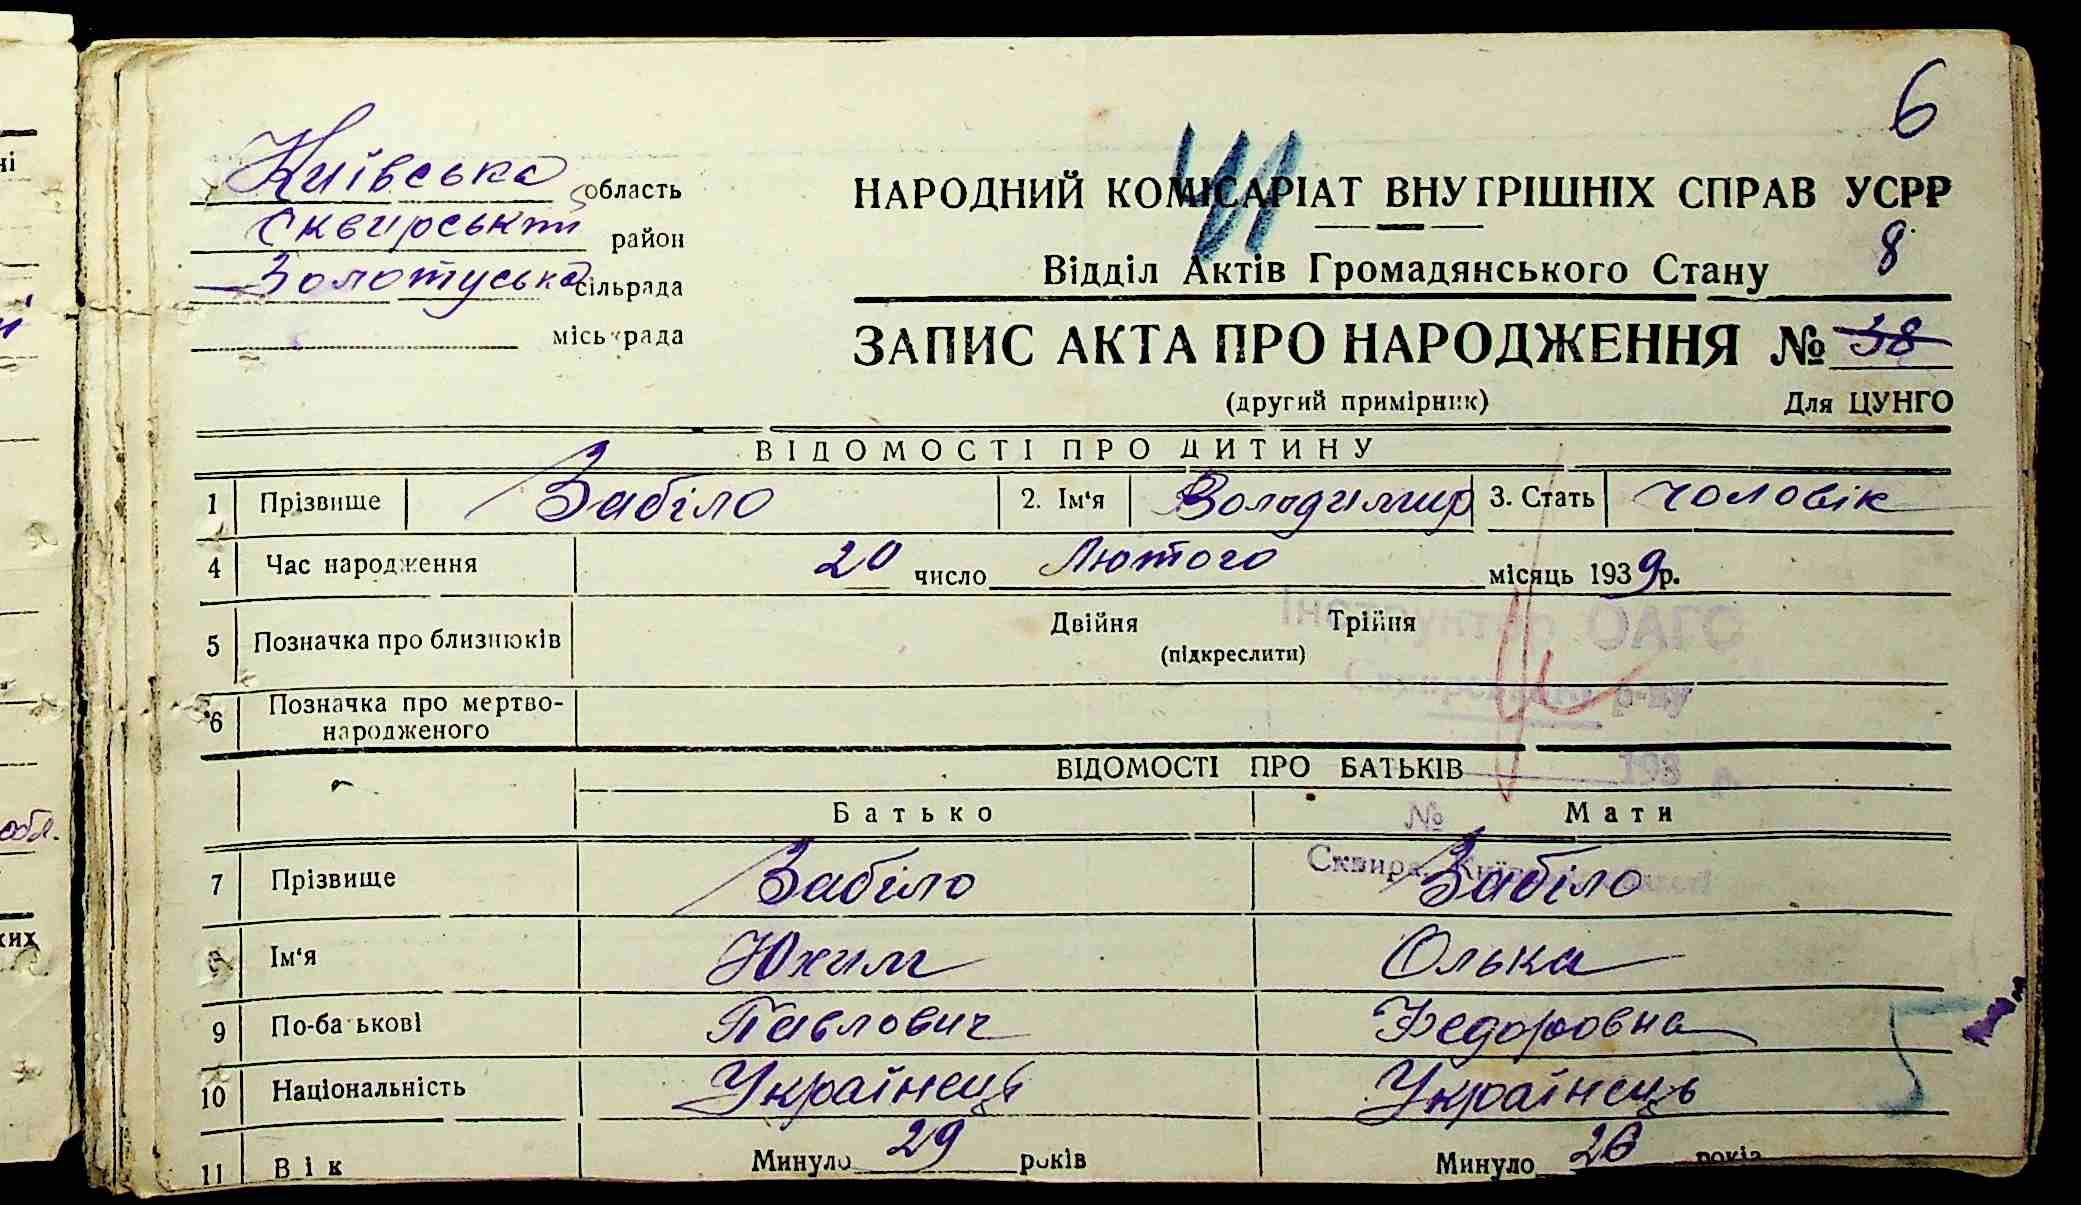 6
Київська область
Сквирський район
Золотуська сільрада
міськрада
НАРОДНИЙ КОМІСАРІАТ ВНУТРІШНІХ СПРАВ УСРР
Відділ Актів Громадянського Стану 8
ЗАПИС АКТА ПРО НАРОДЖЕННЯ № 38
(другий примірник) Для ЦУНГО
ВІДОМОСТІ ПРО ДИТИНУ
1 Прізвище Забіло 2. Ім'я Володимир 3. Стать чоловік
4 Час народження 20 число Лютого місяць 1939 р.
5 Позначка про близнюків Двійня Трійня
(підкреслити)
Інструктор ОАГС
Сквирського р-ну
6 Позначка про мертво-
народженого
ВІДОМОСТІ ПРО БАТЬКІВ
193 р.
Батько Мати
№
Сквира, Київської області
7 Прізвище Забіло Забіло
8 Ім'я Юхим Олька
9 По-батькові Павлович Федоровна
10 Національність Українець Українець
5
11 Вік Минуло 29 років Минуло 26 років
обл.
ких